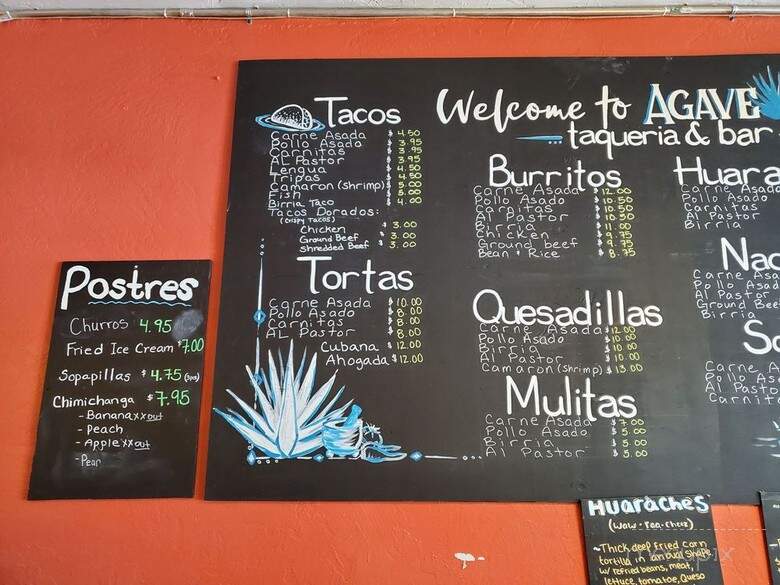 Welcome to AGAVE
taqueria & bar
Tacos
Carne Asada $ 4.50
Pollo Asado $ 3.95
Carnitas $ 3.95
AL Pastor $ 3.95
Lengua $ 4.50
Tripas $ 4.50
Camaron (shrimp) $ 5.00
Fish $ 5.00
Birria Taco $ 4.00
Tacos Dorados:
(crispy tacos)
Chicken $ 3.00
Ground Beef $ 3.00
Shredded Beef $ 3.00
Tortas
Carne Asada $ 10.00
Pollo Asado $ 8.00
Carnitas $ 8.00
AL Pastor $ 8.00
Cubana $ 12.00
Ahogada $ 12.00
Burritos
Carne Asada $ 12.00
Pollo Asado $ 10.50
Carnitas $ 10.50
Al Pastor $ 10.50
Birria $ 11.00
Chicken $ 9.75
Ground beef $ 9.75
Bean + Rice $ 8.75
Quesadillas
Carne Asada $ 12.00
Pollo Asado $ 10.00
Birria $ 10.00
Al Pastor $ 10.00
Camaron (shrimp) $ 13.00
Mulitas
Carne Asada $ 7.00
Pollo Asado $ 5.00
Birria $ 5.00
Al Pastor $ 5.00
Huara
Carne Asad
Pollo Asado
Carnitas
Al Pastor
Birria
Nac
Carne Asa
Pollo Asad
Al Pastor
Ground Bee
Birria
So
Carne A
Pollo As
Al Pasto
Carnit
Postres
Churros 4.95
Fried Ice Cream $7.00
Sopapillas $4.75
Chimichanga $7.95
- Banana xx out
- Peach
- Apple xx out
- Pear
Huaraches
(waw-raa-cheez)
~Thick deep fried corn
tortilla in an oval shape
w/ refried beans, meat,
lettuce, tomatoe, queso